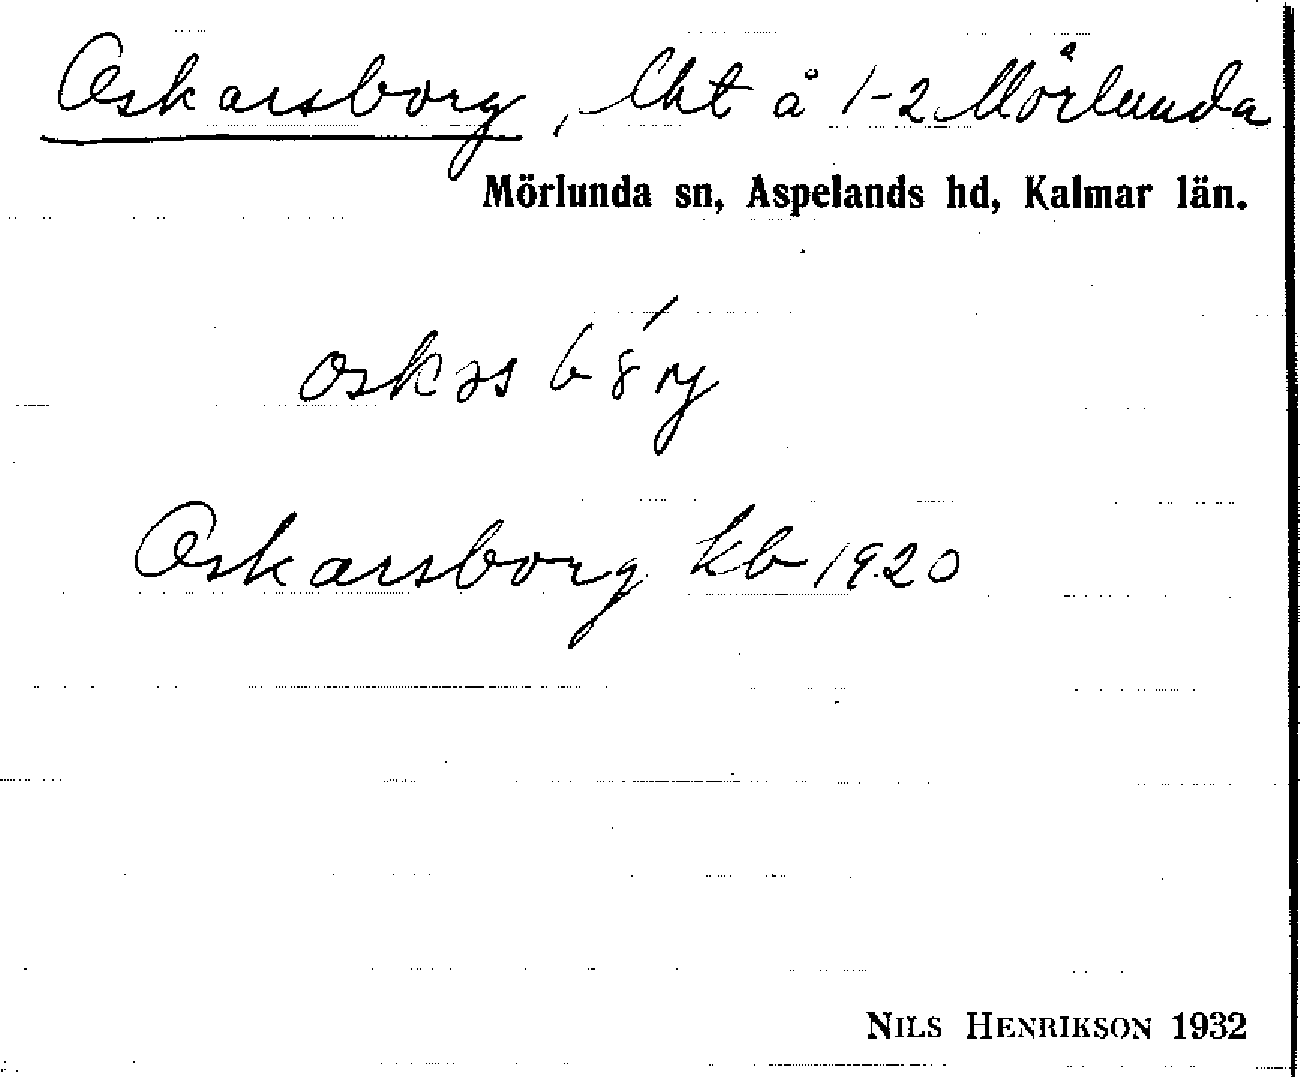 Oskarsborg, lht å 1-2 Mörlunda
Mörlunda sn, Aspelands hd, Kalmar län.
oskas bór̡j
Oskarsborg kb 1920
NILS HENRIKSON 1932